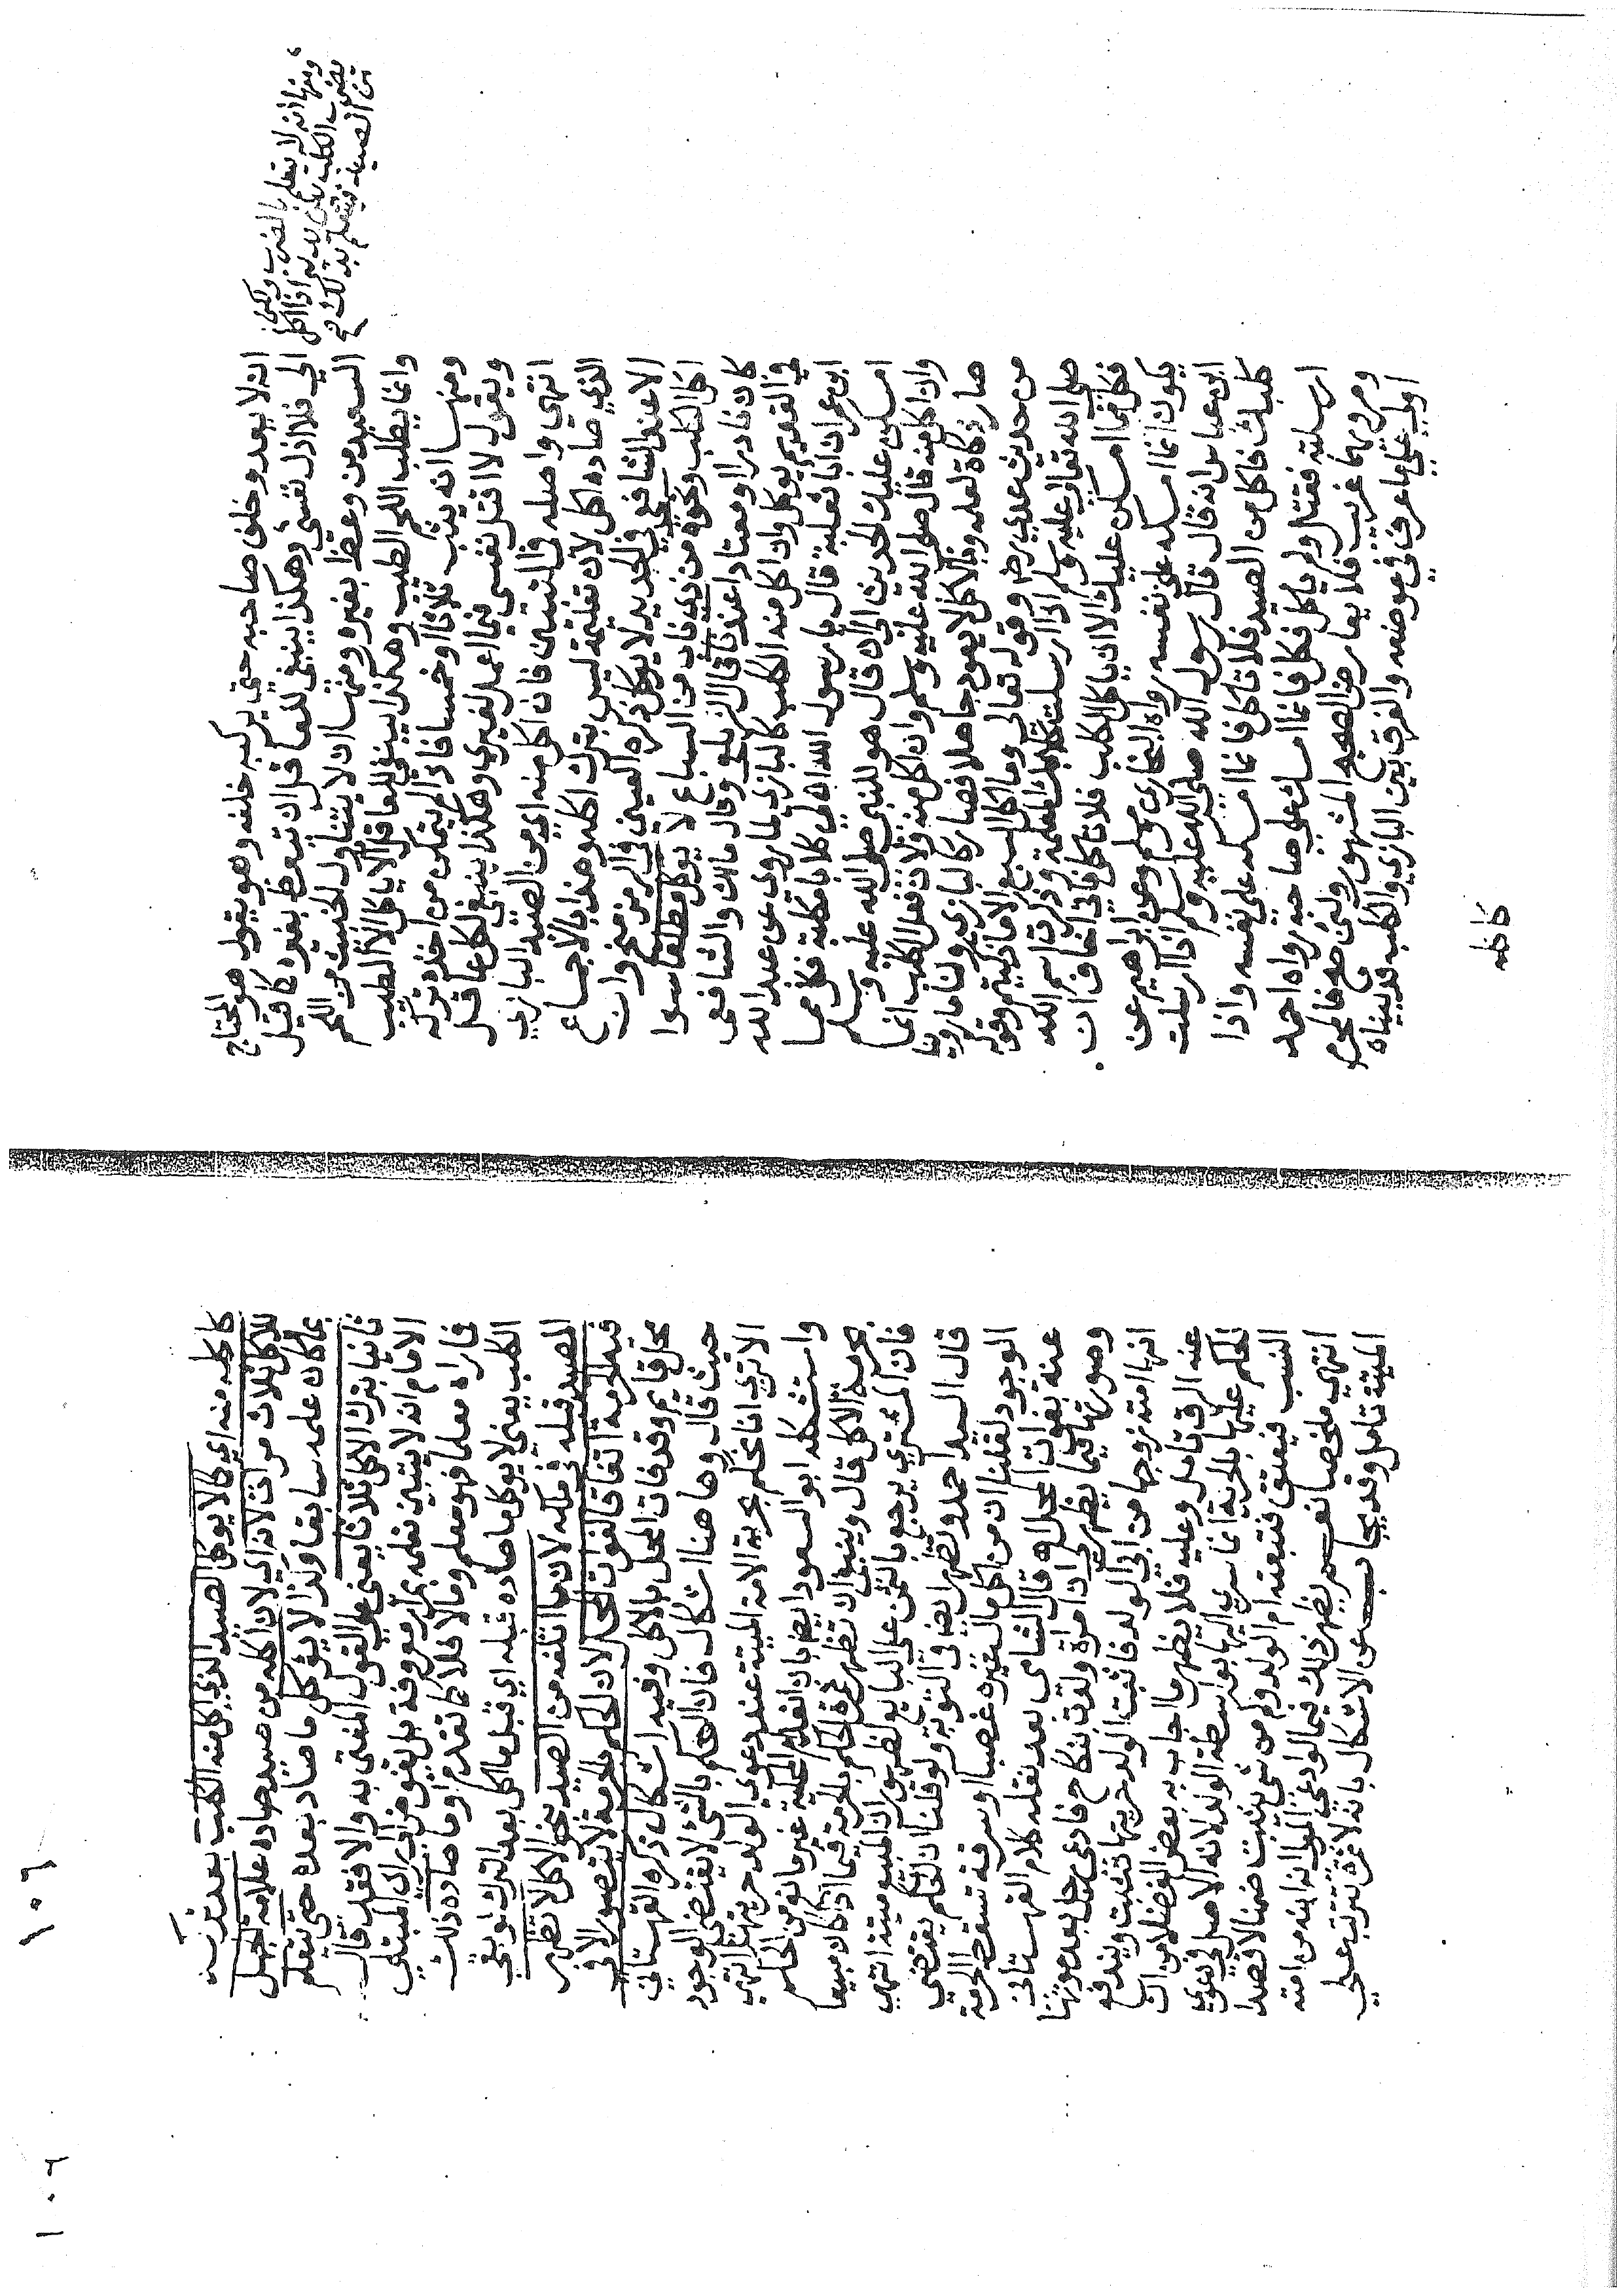 انه لا يعدو خلف صاحبه حتى يركبه خلفه وهو يقول هو المحتاج
الي فلا اذل نفسي وهكذا ينبغي للعاقل ان يتعظ بغيره كما قيل
السعيد من وعظ بغيره ومنها ان لا يتناول الخبيث من اللحم
وانما يطلب اللحم الطيب وهكذا ينبغي للعاقل ان لا ياكل الا الطيب
ومنها انه يثب ثلاثا او خمسا فاذا لم يتمكن من اخذه تركه
ويقول لا اقتل نفسي فيما اعمل لغيري وهكذا ينبغي لكل عاقل
انتهي واصله في التبيين فان اكل منه اي من الصيد البازي
الذي صاده اكل لان تعليمه ليس بترك اكله وهذا بالاجماع
الا عند الشافعي في الجديد لا يوكل ذكره العيني في الرمز منح وان
اكل الكلب ونحوه من ذي ناب من السباع لا يوكل مطلقا سوا
كان نادرا او معتادا عندنا قال الزيلعي وقال مالك والشافعي
في القديم يوكل وان اكل منه الكلب كالبازي لما روي عن عبد الله
ابن عمر ان ابا ثعلبة قال يا رسول الله ان لي كلابا مكلبة فكل مما
امسكن عليك الحديث الى ان قال هو للنبي صلى الله عليه وسلم
وان اكل منه قال صلى الله عليه وسلم وان اكل منه ولان فعل الكلب انما
صار ذكاة لعلمه وبالاكل لا يعود جاهلا فصار كالبازي ولنا ما روينا
من حديث عدي رضي وقوله تعالى وما اكل السبع الا ما ذكيتم وقوله
صلى الله تعالى عليه وسلم اذا ارسلت كلابك المعلمة وذكرت اسم الله
فكل مما امسكن عليك الا ان ياكل الكلب فلا تاكل فاني اخاف ان
يكون انما امسكه على نفسه رواه البخاري ومسلم وعن ابراهيم عن
ابن عباس انه قال قال رسول الله صلى الله عليه وسلم اذا ارسلت
كلبك فاكل من الصيد فلا تاكل فانما امسكه على نفسه واذا
ارسلته فقتل ولم ياكل فكل فانما امسك على صاحبه رواه احمد
ومرويهما غريب فلا يعارض الصحيح المشهور ولئن صح فالمحرم
اولى على ما عرف في موضعه والفرق بين البازي والكلب قد بيناه
ومنها انه لا يتعلم بالضرب ولكن
يضرب الكلب بين يديه اذا اكل
من الصيد فيتعلم بذلك
كاكله
١٠٦
كاكله منه اي كما لا يوكل الصيد الذي اكل منه الكلب بعد تركه
للاكل ثلاث مرات لانه اي لان اكله من صيد صاده علامة الجهل
بما كان علمه سابقا وكذا لا يؤكل ما صاد بعده حتى يتعلم
ثانيا بترك الاكل ثلاثا يعني على القول المفتى به والا فقد قال
الامام انه لا يتبين تعلمه بامر معروفة بل يفوض الى راي المبتلى
فان راه معلما فهو معلم وما لا فلا كما تقدم او ما صاده ذلك
الكلب يعني لا يوكل ما صاده قبله اي قبل ما اكل بعد الترك لو بقي
الصيد قبله في ملكه لان ما اتلفه من الصيد بنحو الاكل لا تظهر
فيه الحرمة اتفاقا لفوات المحل لان الحكم بالحرمة لا يتصور الا في
محل قايم وقد فات المحل بالاكل وفيه اشكال ذكره القهستاني
حيث قال وها هنا اشكال فان الحكم بالشئ لا يقتضي الوجود
الا ترى انا نحكم بحرية الامة الميتة عند دعوى الولد حريتها انتهي
واستشكله ابو السعود ايضا بان انعدام المحلية غير مانع من الحكم
بحرمة الاكل قال وينبغي ان تظهر ثمرة الحكم بالحرمة فيما اذا كان مبيعا
فان المشتري يرجع بالثمن على البايع لظهور ان المبيع ميتة انتهي
قال السيد احمد وتظهر ايضا في التوبة ولو قلنا ان الحكم يقتضي
الوجود لقلنا ان من اكل مال غيره غصبا او سرقة تسقط الحرمة
عنه بفوات المحل اه قال الشامي بعد نقله كلام القهستاني
وصورتها فيما يظهر لي ان امراة ولدت بنكاح فادعى رجل بعد موتها
انها امته زوجها من ابي الولد فاثبت الولد حريتها تثبت ويندفع
عنه الرق تامل وعليه فلا يظهر ما اجاب به بعض الفضلا من ان
الحكم عليها بالحرية انما سرى اليها بواسطة الولد لانه الاصل في دعوى
النسب فيعتق فتبعته ام الولد وكم من شئ يثبت ضمنا لا قصدا
انتهي ملخصا نعم يظهر ذلك فيما لو ادعى المولى انه ابنه من امته
الميتة تامل وقد يجاب عن الاشكال بانه لا ثمرة تترتب على
١٠٦